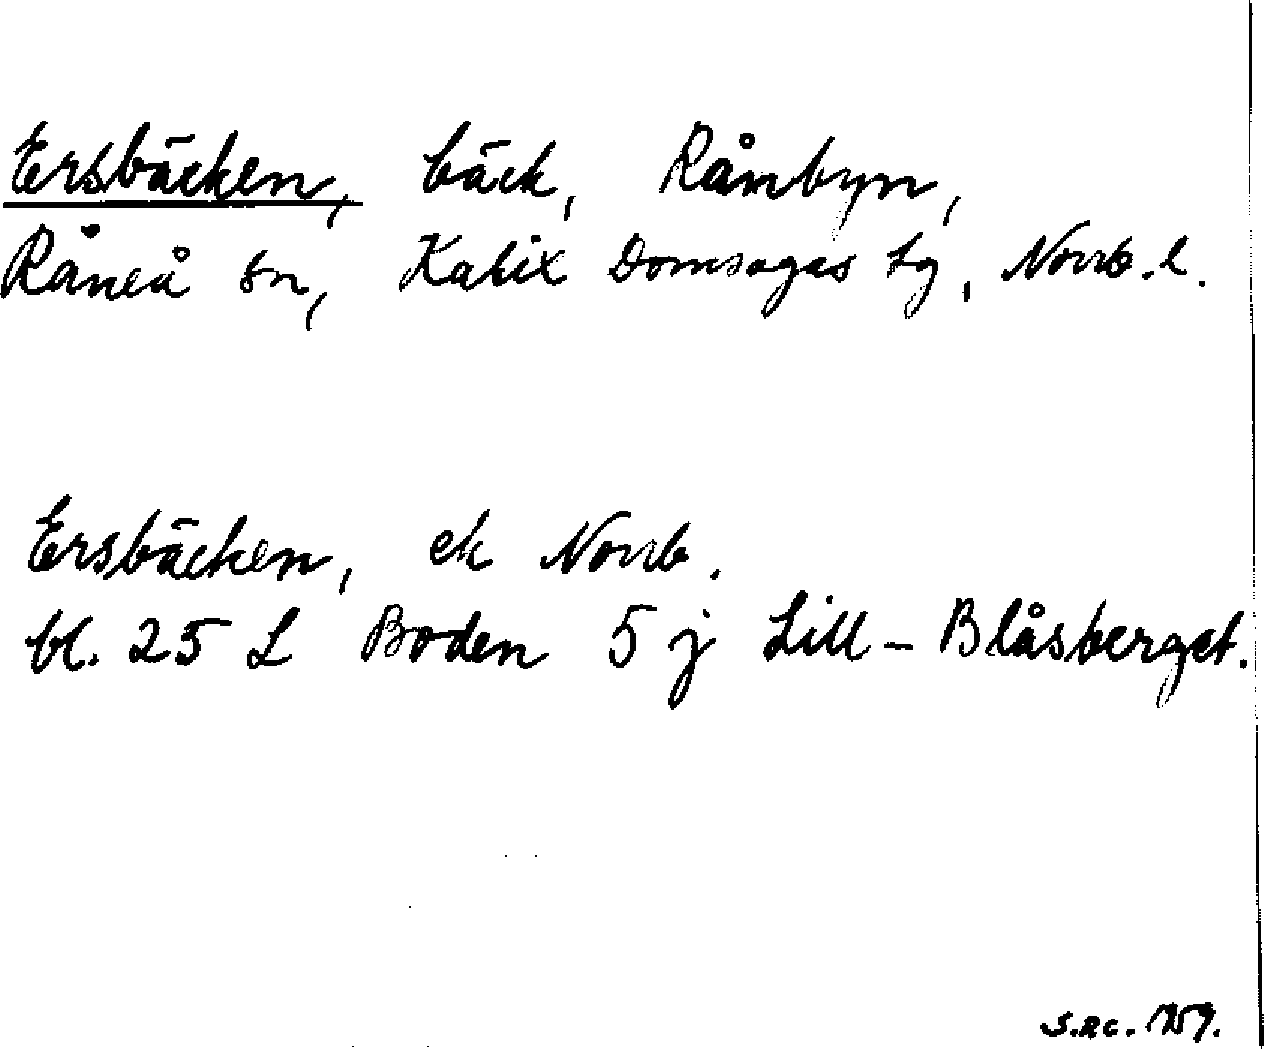 Ersbäcken, bäck, Rånbyn,
Råneå sn, Kalix Domsagas tg, Norrb. l.
Ersbäcken, ek Norrb.
bl. 25 L Boden 5 j Lill-Blåsberget.